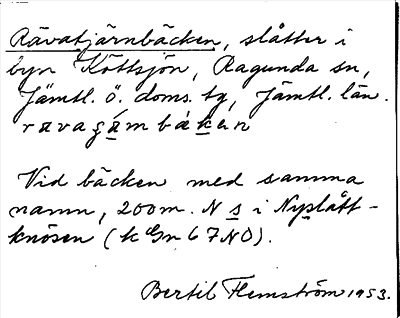 Rävatjärnbäcken, slåtter i
byn Köttsjön, Ragunda sn,
Jämtl. ö. doms. tg, Jämtl. län.
ravagámbàken
Vid bäcken med samma
namn, 200 m. N s i Nyslått-
knösen (k Gn 67NO).
Bertil Flemström 1953.